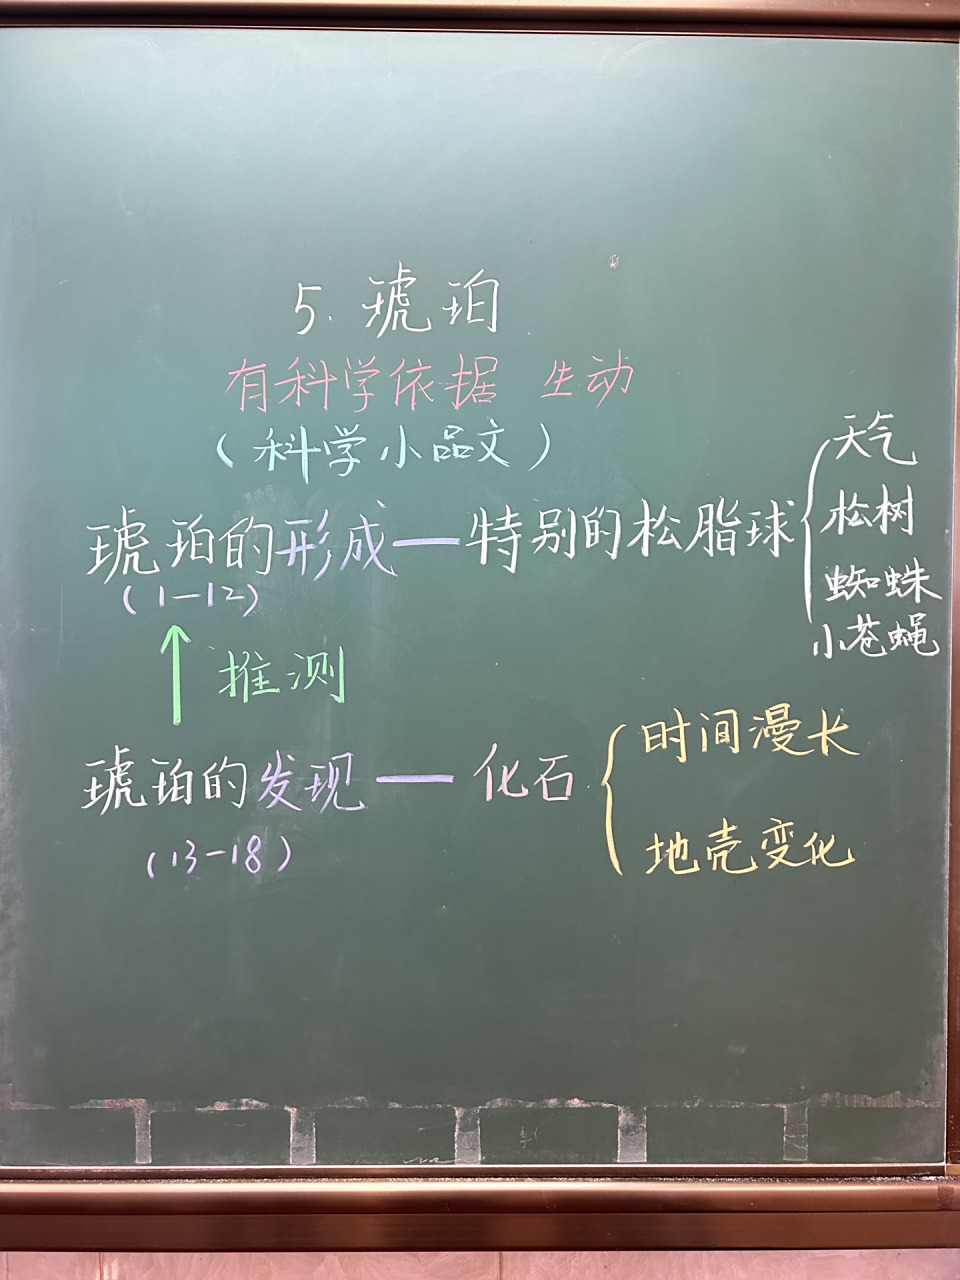 5. 琥珀
有科学依据 生动
（科学小品文）
琥珀的形成—特别的松脂球
天气
松树
蜘蛛
小苍蝇
（1—12）
推测
琥珀的发现—化石
时间漫长
地壳变化
（13-18）